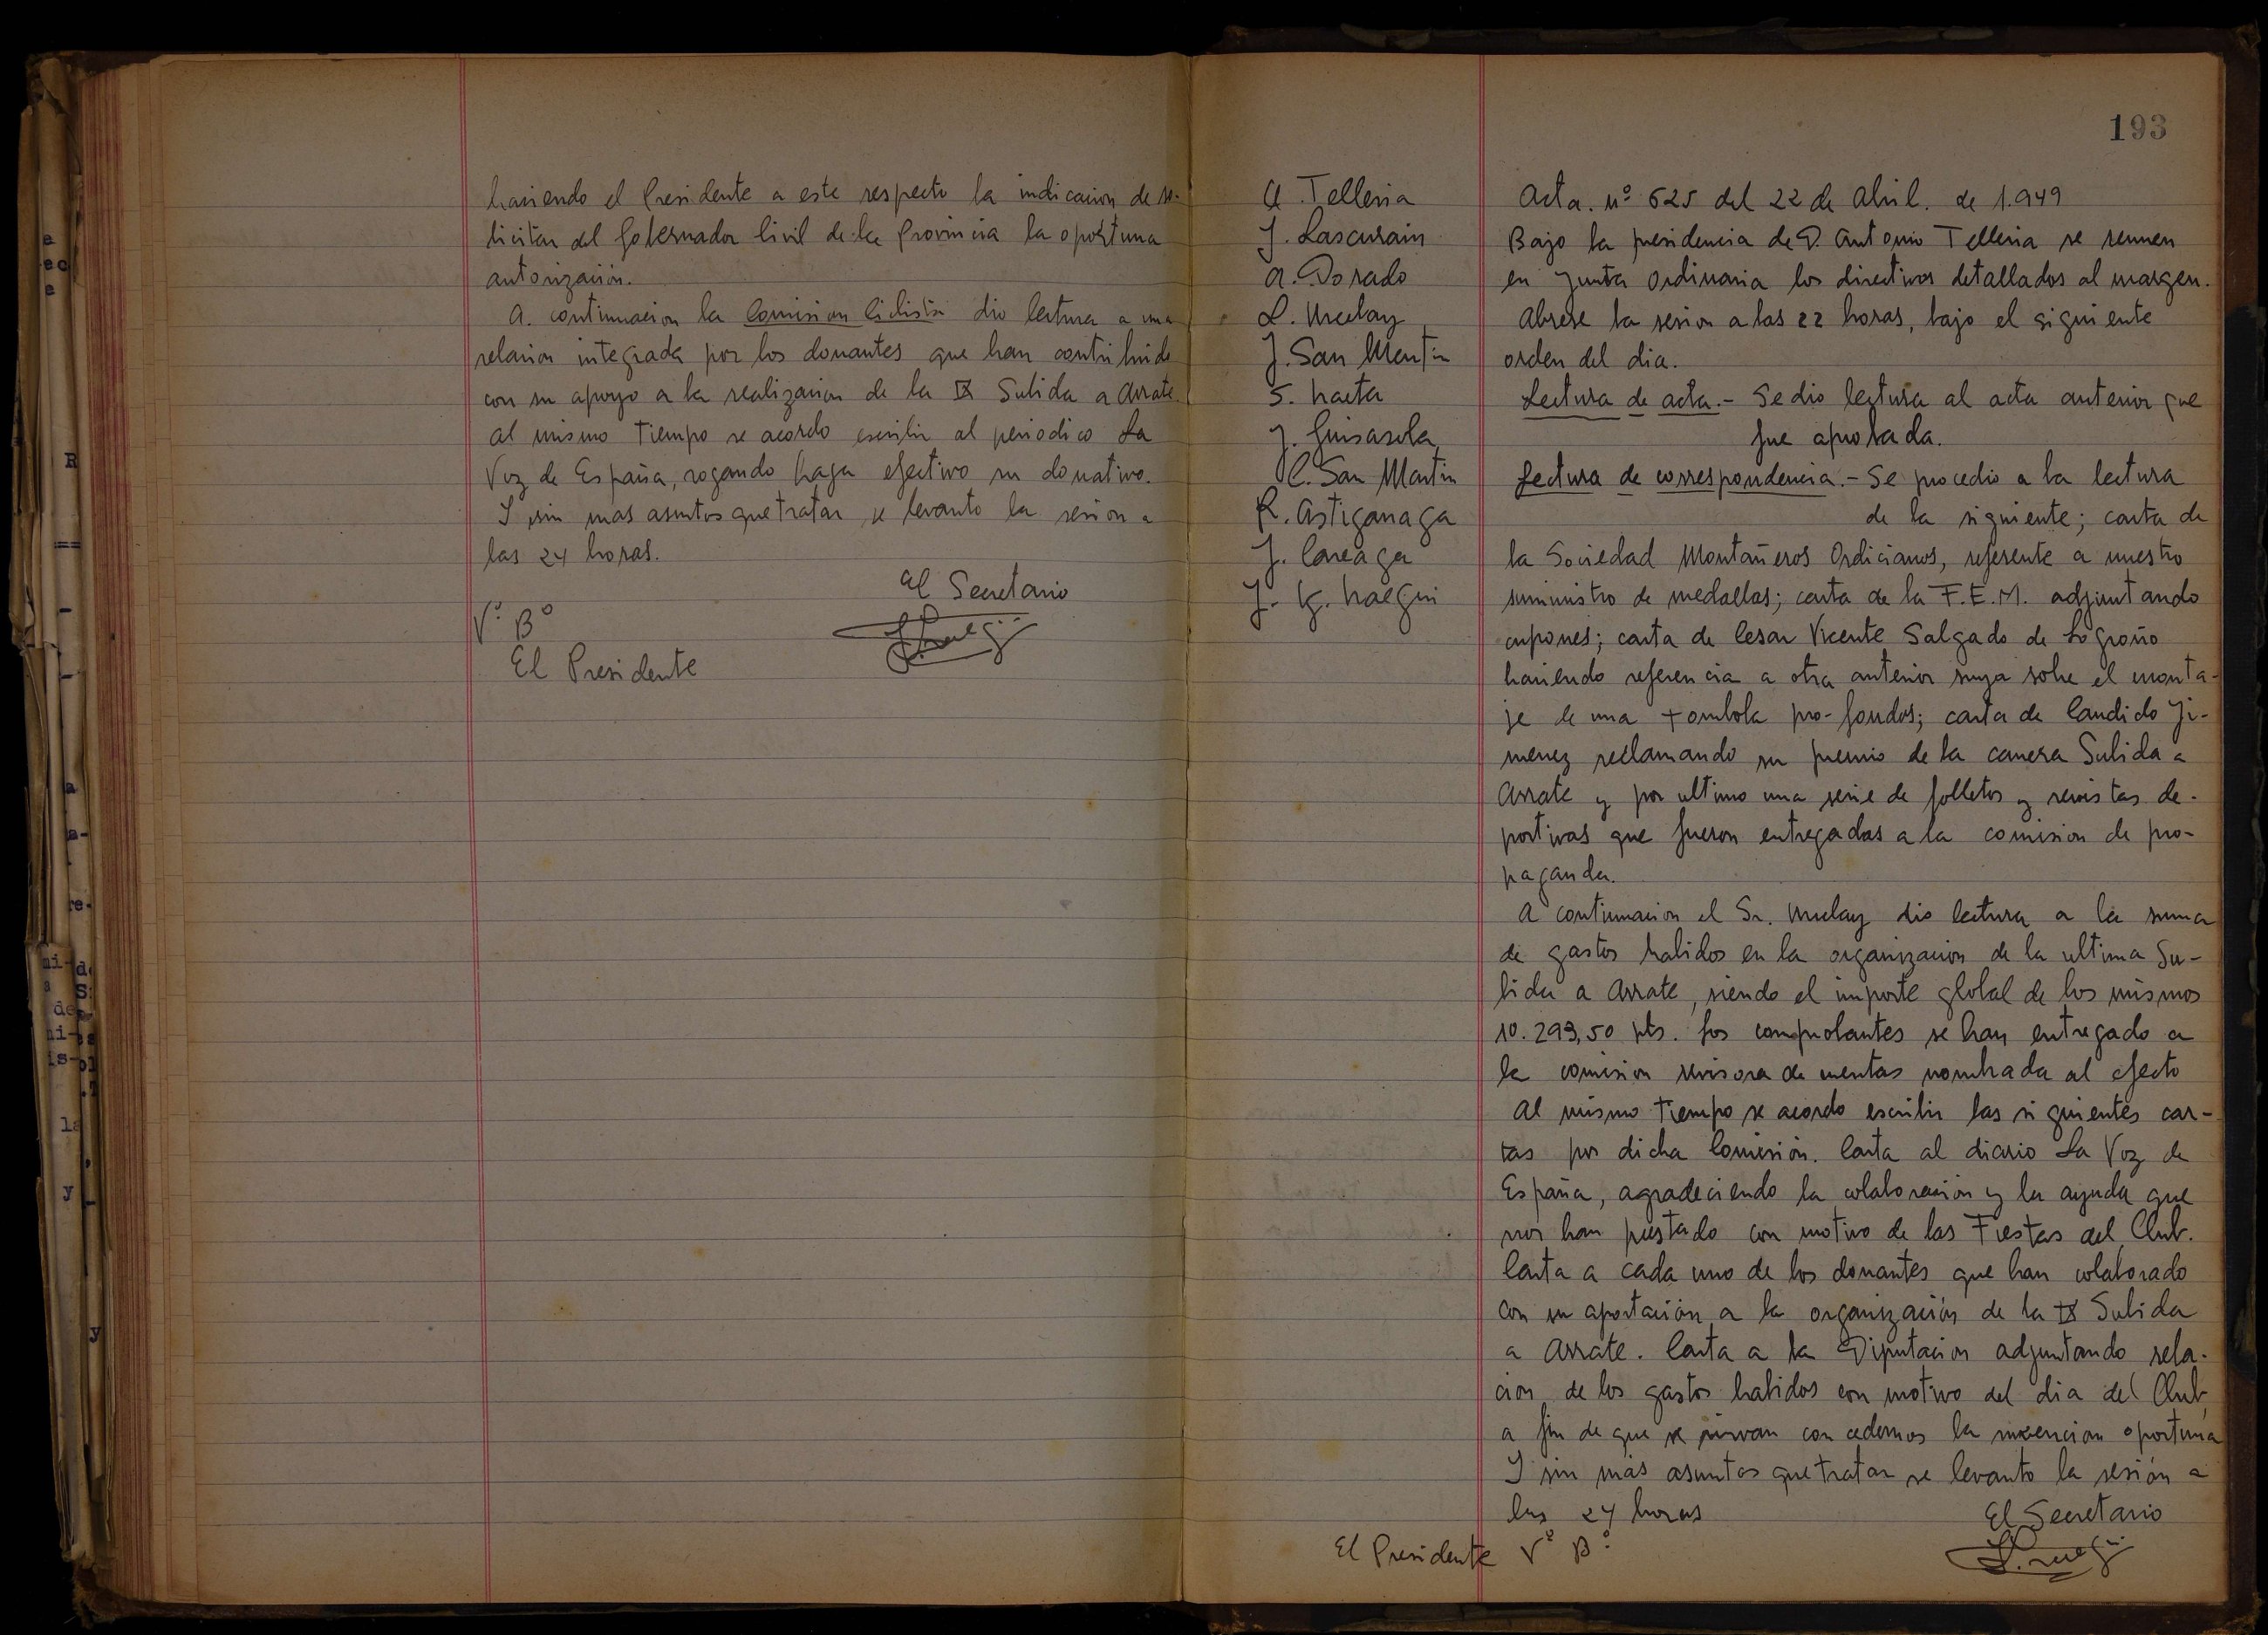 haciendo el Presidente a este respecto la indicacion de so-
licitar del Gobernador Civil de la Provincia la oportuna
autorización.
A. continuacion la Comision Ciclista dio lectura a una
relacion integrada por los donantes que han contribuido
con su apoyo a la realizacion de la IX Subida a Arrate.
Al mismo tiempo se acordo escribir al periodico La
Voz de España, rogando haga efectivo su donativo.
Y sin mas asuntos que tratar se levanto la sesion a
las 24 horas.
El Secretario
Vº Bº
El Presidente
193
A. Telleria
J. Lascurain
A. Dorado
L. Urcelay
J. San Martin
J. Guisasola
C. San Martin
R. Astiganaga
J. Careaga
Acta. nº 625 del 22 de Abril. de 1.949
Bajo la presidencia de D. Antonio Telleria se reunen
en Junta Ordinaria los directivos detallados al margen.
Abrese la sesion a las 22 horas, bajo el siguiente
orden del dia.
Lectura de acta.- Se dio lectura al acta anterior que
fue aprobada.
Lectura de correspondencia.- Se procedio a la lectura
de la siguiente; carta de
la Sociedad Montañeros Ordicianos, referente a nuestro
suministro de medallas; carta de la F.E.M. adjuntando
cupones; carta de Cesar Vicente Salgado de Logroño
haciendo referencia a otra anterior suya sobre el monta-
je de una tombola pro-fondos; carta de Candido Ji-
menez reclamando su premio de la carrera Subida a
Arrate y por ultimo una serie de folletos y revistas de-
portivas que fueron entregadas a la comision de pro-
paganda.
A continuacion el Sr. Urcelay dio lectura a la suma
de gastos habidos en la organizacion de la ultima Su-
bida a Arrate, siendo el importe global de los mismos
10.293,50 pts. Los comprobantes se han entregado a
la comision revisora de cuentas nombrada al efecto
Al mismo tiempo se acordo escribir las siguientes car-
tas por dicha Comisión. Carta al diario La Voz de
España, agradeciendo la colaboración y la ayuda que
nos han prestado con motivo de las Fiestas del Club.
Carta a cada uno de los donantes que han colaborado
con su aportación a la organización de la IX Subida
a Arrate. Carta a la Diputacion adjuntando rela-
cion de los gastos habidos con motivo del dia del Club,
a fin de que se sirvan concedernos la subvencion oportuna
Y sin más asuntos que tratar se levanto la sesión a
las 24 horas
El Secretario
El Presidente Vº Bº